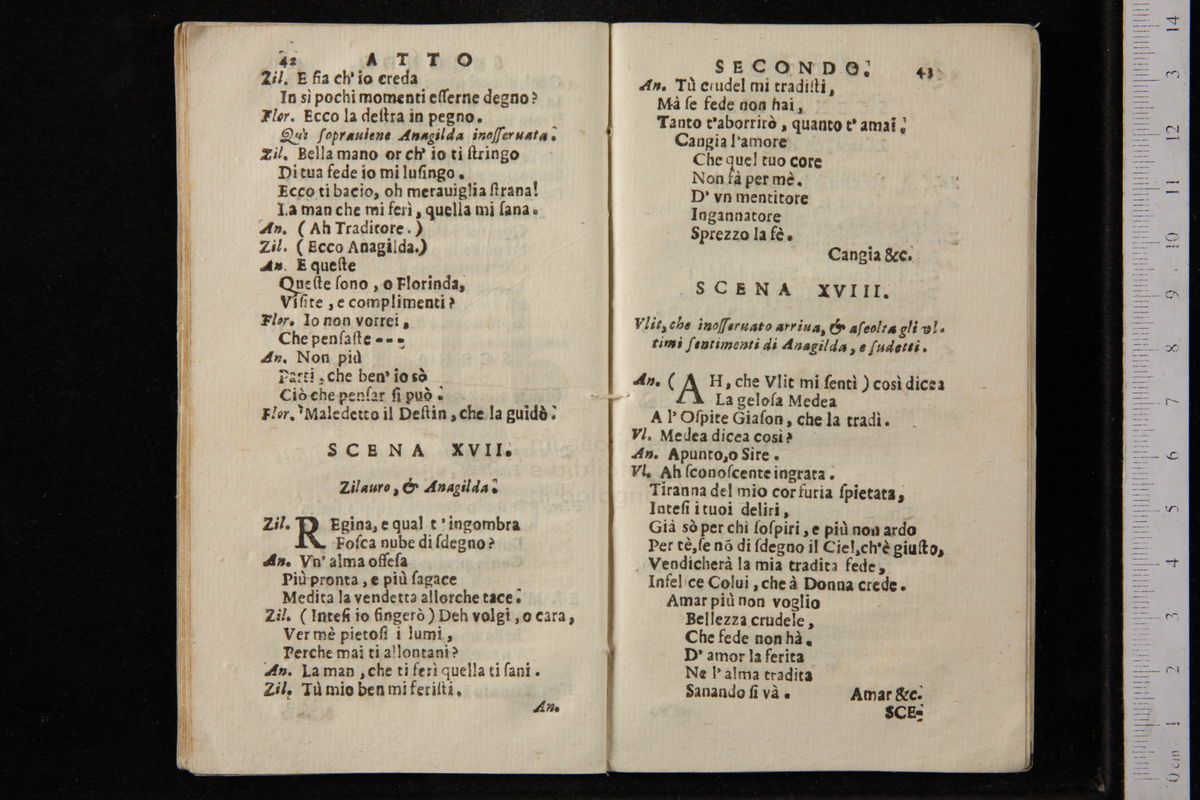 42 ATTO
Zil. E ſia ch' io creda
In sì pochi momenti eſſerne degno?
Flor. Ecco la deſtra in pegno.
Quì ſoprauiene Anagilda inoſſeruata.
Zil. Bella mano or ch' io ti ſtringo
Di tua fede io mi luſingo.
Ecco ti bacio, oh merauiglia ſtrana!
La man che mi ferì, quella mi ſana.
An. (Ah Traditore.)
Zil. (Ecco Anagilda.)
An. E queſte
Queſte ſono, o Florinda,
Viſite, e complimenti?
Flor. Io non vorrei,
Che penſaſte ---
An. Non più
Parti, che ben' io sò
Ciò che penſar ſi può.
Flor. Maledetto il Deſtin, che la guidò.
SCENA XVII.
Zilauro, & Anagilda.
Zil. REgina, e qual t'ingombra
Foſca nube di ſdegno?
An. Vn' alma offeſa
Più pronta, e più ſagace
Medita la vendetta allorche tace.
Zil. (Inteſi io fingerò) Deh volgi, o cara,
Ver mè pietoſi i lumi,
Perche mai ti allontani?
An. La man, che ti ferì quella ti ſani.
Zil. Tù mio ben mi feriſti.
An.
SECONDO. 43
An. Tù crudel mi tradiſti,
Mà ſe fede non hai,
Tanto t'aborrirò, quanto t' amai.
Cangia l'amore
Che quel tuo core
Non fà per mè.
D' vn mentitore
Ingannatore
Sprezzo la fè.
Cangia &c.
SCENA XVIII.
Vlit, che inoſſeruato arriua, & aſcolta gli vl-
timi ſentimenti di Anagilda, e ſudetti.
An. (AH, che Vlit mi ſentì) così dicea
La geloſa Medea
A l' Oſpite Giaſon, che la tradì.
Vl. Medea dicea così?
An. Apunto, o Sire.
Vl. Ah ſconoſcente ingrata.
Tiranna del mio cor furia ſpietata,
Inteſi i tuoi deliri,
Già sò per chi ſoſpiri, e più non ardo
Per tè, ſe nõ di ſdegno il Ciel, ch'è giuſto,
Vendicherà la mia tradita fede,
Infelice Colui, che à Donna crede.
Amar più non voglio
Bellezza crudele,
Che fede non hà.
D' amor la ferita
Ne l' alma tradita
Sanando ſi và. Amar &c.
SCE-